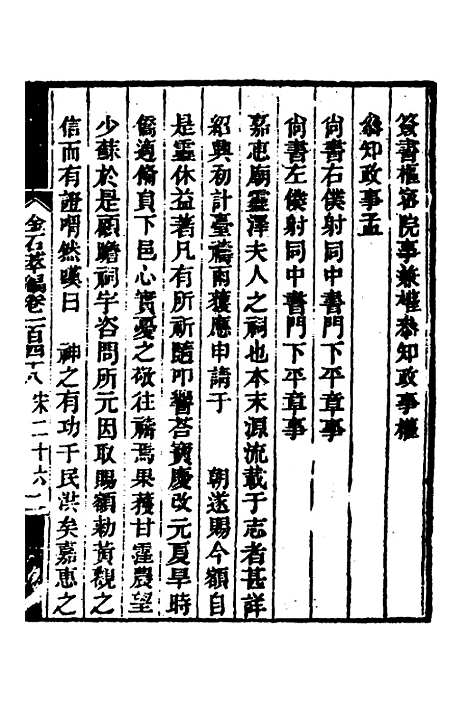 簽書樞密院事兼權叅知政事權
叅知政事孟
尚書右僕射同中書門下平章事
尚書左僕射同中書門下平章事
嘉惠廟靈澤夫人之祠也本末源流載于志者甚詳
紹興初計臺禱雨獲應申請于　朝遂賜今額自
是靈休益著凡有所祈隨叩響荅寳慶改元夏旱時
僑適脩貟下邑心實憂之敬往禱焉果獲甘霔農望
少蘇於是顧瞻祠宇咨問所元因取賜額勅黃觀之
信而有證喟然嘆曰　神之有功于民洪矣嘉惠之
金石萃編卷一百四十八　宋二十六　二